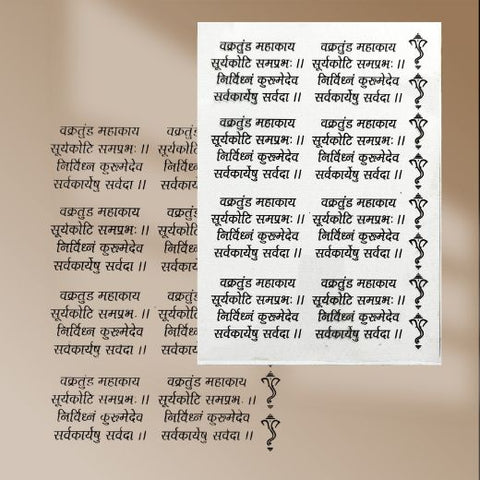 वक्रतुंड महाकाय वक्रतुंड महाकाय
सूर्यकोटि समप्रभः ।। सूर्यकोटि समप्रभः ।।
निर्विध्नं कुरूमेदेव निर्विध्नं कुरूमेदेव
सर्वकार्येषु सर्वदा ।। सर्वकार्येषु सर्वदा ।।
वक्रतुंड महाकाय वक्रतुंड महाकाय
सूर्यकोटि समप्रभः ।। सूर्यकोटि समप्रभः ।।
निर्विध्नं कुरूमेदेव निर्विध्नं कुरूमेदेव
सर्वकार्येषु सर्वदा ।। सर्वकार्येषु सर्वदा ।।
वक्रतुंड महाकाय वक्रतुंड महाकाय
सूर्यकोटि समप्रभः ।। सूर्यकोटि समप्रभः ।।
निर्विध्नं कुरूमेदेव निर्विध्नं कुरूमेदेव
सर्वकार्येषु सर्वदा ।। सर्वकार्येषु सर्वदा ।।
वक्रतुंड महाकाय वक्रतुंड महाकाय
सूर्यकोटि समप्रभः ।। सूर्यकोटि समप्रभः ।।
निर्विध्नं कुरूमेदेव निर्विध्नं कुरूमेदेव
सर्वकार्येषु सर्वदा ।। सर्वकार्येषु सर्वदा ।।
वक्रतुंड महाकाय
सूर्यकोटि समप्रभः ।।
निर्विध्न कुरूमेदेव
सर्वकार्येषु सर्वदा ।।
वक्रतुंड महाकाय
सूर्यकोटि समप्रभः ।।
निर्विध्नं कुरूमेदेव
सर्वकार्येषु सर्वदा ।।
वक्रतुंड महाकाय
सूर्यकोटि समप्रभः ।।
निर्विध्नं कुरूमेदेव
सर्वकार्येषु सर्वदा ।।
वक्रतुंड महाकाय वक्रतुंड महाकाय
सूर्यकोटि समप्रभः ।। सूर्यकोटि समप्रभः ।।
निर्विध्नं कुरूमेदेव निर्विध्नं कुरूमेदेव
सर्वकार्येषु सर्वदा ।। सर्वकार्येषु सर्वदा ।।